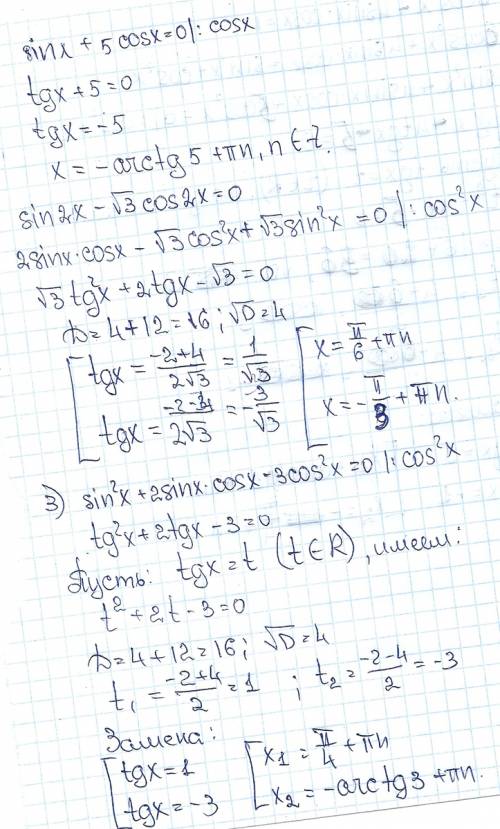 sinx + 5cosx = 0 |: cosx
tgx + 5 = 0
tgx = -5
x = -arctg5 + πn, n ∈ Z.
sin2x - √3 cos2x = 0
2sinx·cosx - √3 cos²x + √3 sin²x = 0 |: cos²x
√3 tg²x + 2tgx - √3 = 0
D = 4 + 12 = 16; √D = 4
[ tgx = (-2+4)/(2√3) = 1/√3 [ x = π/6 + πn
tgx = (-2-4)/(2√3) = -3/√3 x = -π/3 + πn.
3) sin²x + 2sinx·cosx - 3cos²x = 0 |: cos²x
tg²x + 2tgx - 3 = 0
Пусть: tgx = t (t ∈ R), имеем:
t² + 2t - 3 = 0
D = 4 + 12 = 16; √D = 4
t₁ = (-2+4)/2 = 1 ; t₂ = (-2-4)/2 = -3
Замена:
[ tgx = 1 [ x₁ = π/4 + πn
tgx = -3 x₂ = -arctg3 + πn.